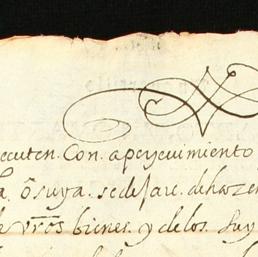 ecuten. Con. aperceuimiento
õ suya. se dejare. de hazer
de vr̃os bienes. y de los. suy